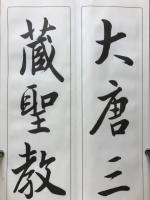 大唐三
藏聖教